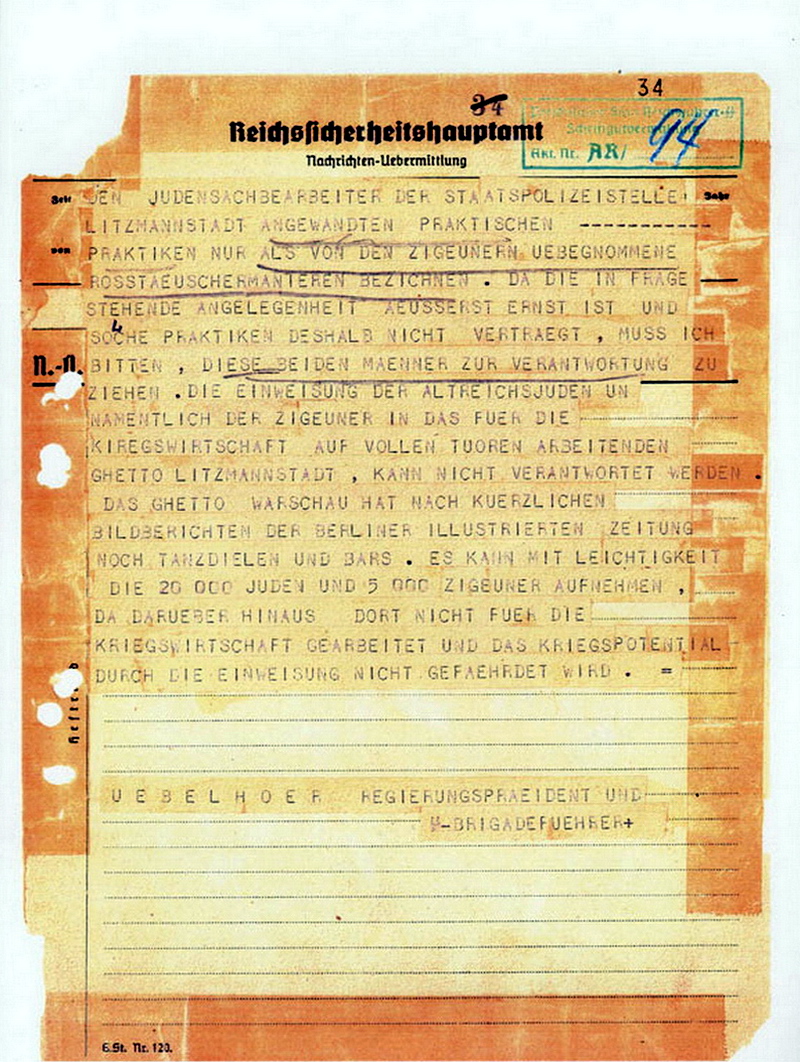 34
34
Reichssicherheitshauptamt
Nachrichten-Uebermittlung
Akt. Nr. AR/ 94
DEN JUDENSACHBEARBEITER DER STAATSPOLIZEISTELLE
LITZMANNSTADT ANGEWANDTEN PRAKTISCHEN -----------
PRAKTIKEN NUR ALS VON DEN ZIGEUNERN UEBEGNOMMENE
ROSSTAEUSCHERMANIEREN BEZICHNEN . DA DIE IN FRAGE
STEHENDE ANGELEGENHEIT AEUSSERST ERNST IST UND
SOLCHE PRAKTIKEN DESHALB NICHT VERTRAEGT , MUSS ICH
N.-N. BITTEN , DIESE BEIDEN MAENNER ZUR VERANTWORTUNG ZU
ZIEHEN . DIE EINWEISUNG DER ALTREICHSJUDEN UN
NAMENTLICH DER ZIGEUNER IN DAS FUER DIE
KIREGSWIRTSCHAFT AUF VOLLEN TUOREN ARBEITENDEN
GHETTO LITZMANNSTADT , KANN NICHT VERANTWORTET WERDEN .
DAS GHETTO WARSCHAU HAT NACH KUERZLICHEN
BILDBERICHTEN DER BERLINER ILLUSTRIERTEN ZEITUNG
NOCH TANZDIELEN UND BARS . ES KANN MIT LEICHTIGKEIT
DIE 20 000 JUDEN UND 5 000 ZIGEUNER AUFNEHMEN ,
DA DARUEBER HINAUS DORT NICHT FUER DIE
KRIEGSWIRTSCHAFT GEARBEITET UND DAS KRIEGSPOTENTIAL
DURCH DIE EINWEISUNG NICHT GEFAEHRDET WIRD . =
U E B E L H O E R REGIERUNGSPRAEIDENT UND
-BRIGADEFUEHRER+
6.St. Nr. 120.